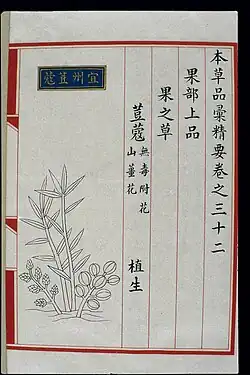 本草品彙精要卷之三十二
果部上品
果之草
荳蔻 無毒附花
山薑花 植生
宜州荳蔻